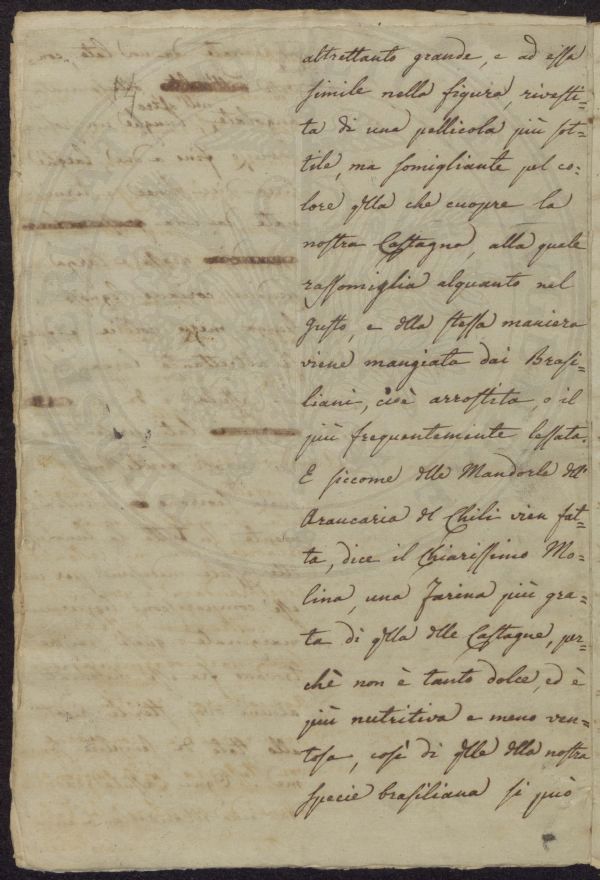 altrettanto grande, e ad essa
simile nella figura, rivesti=
ta di una pellicola più sot=
tile, ma somigliante pel co=
lore qlla che cuopre la
nostra Castagna, alla quale
rassomiglia alquanto nel
gusto, e dlla stessa maniera
viene mangiata dai Brasi=
liani, cioè arrostita, o il
più frequentemente lessata.
E siccome dlle Mandorle dell'
Araucaria dl Chili vien fat=
ta, dice il Chiarissimo Mo=
lina, una Farina più gra=
ta di qlla dlle Castagne, per=
chè non è tanto dolce, ed è
più nutritiva e meno ven=
tosa, così di qlle dlla nostra
specie brasiliana si può